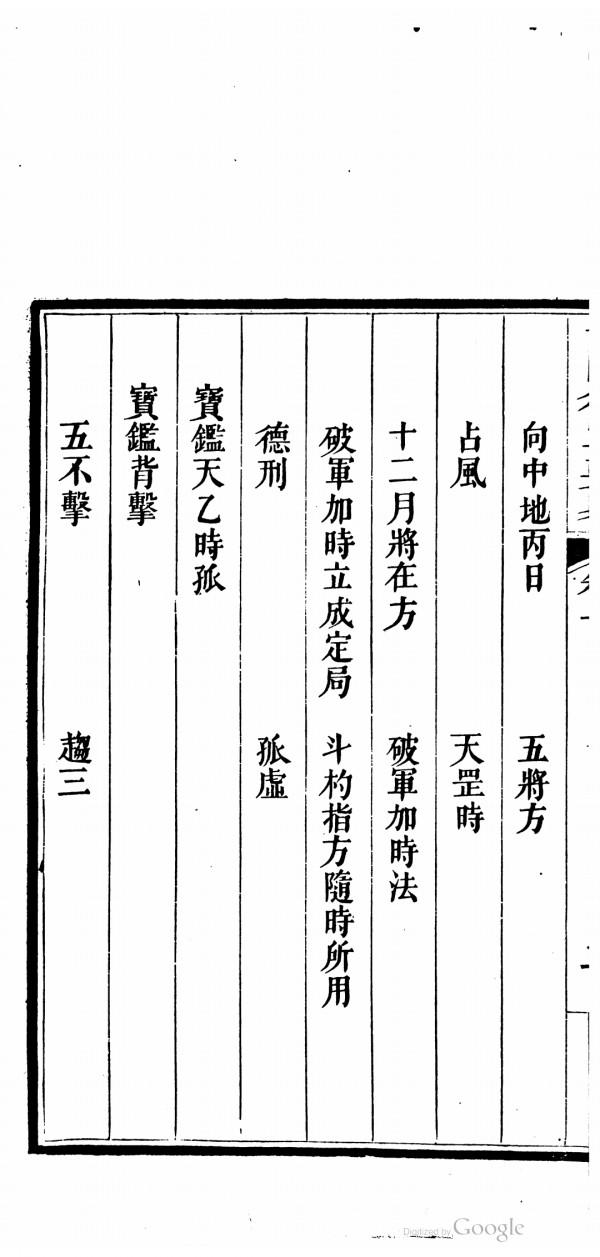 向中地丙日　五將方
占風　天罡時
十二月將在方　破軍加時法
破軍加時立成定局　斗杓指方隨時所用
德刑　孤虛
寶鑑天乙時孤
寶鑑背擊
五不擊　趨三
Digitized by Google